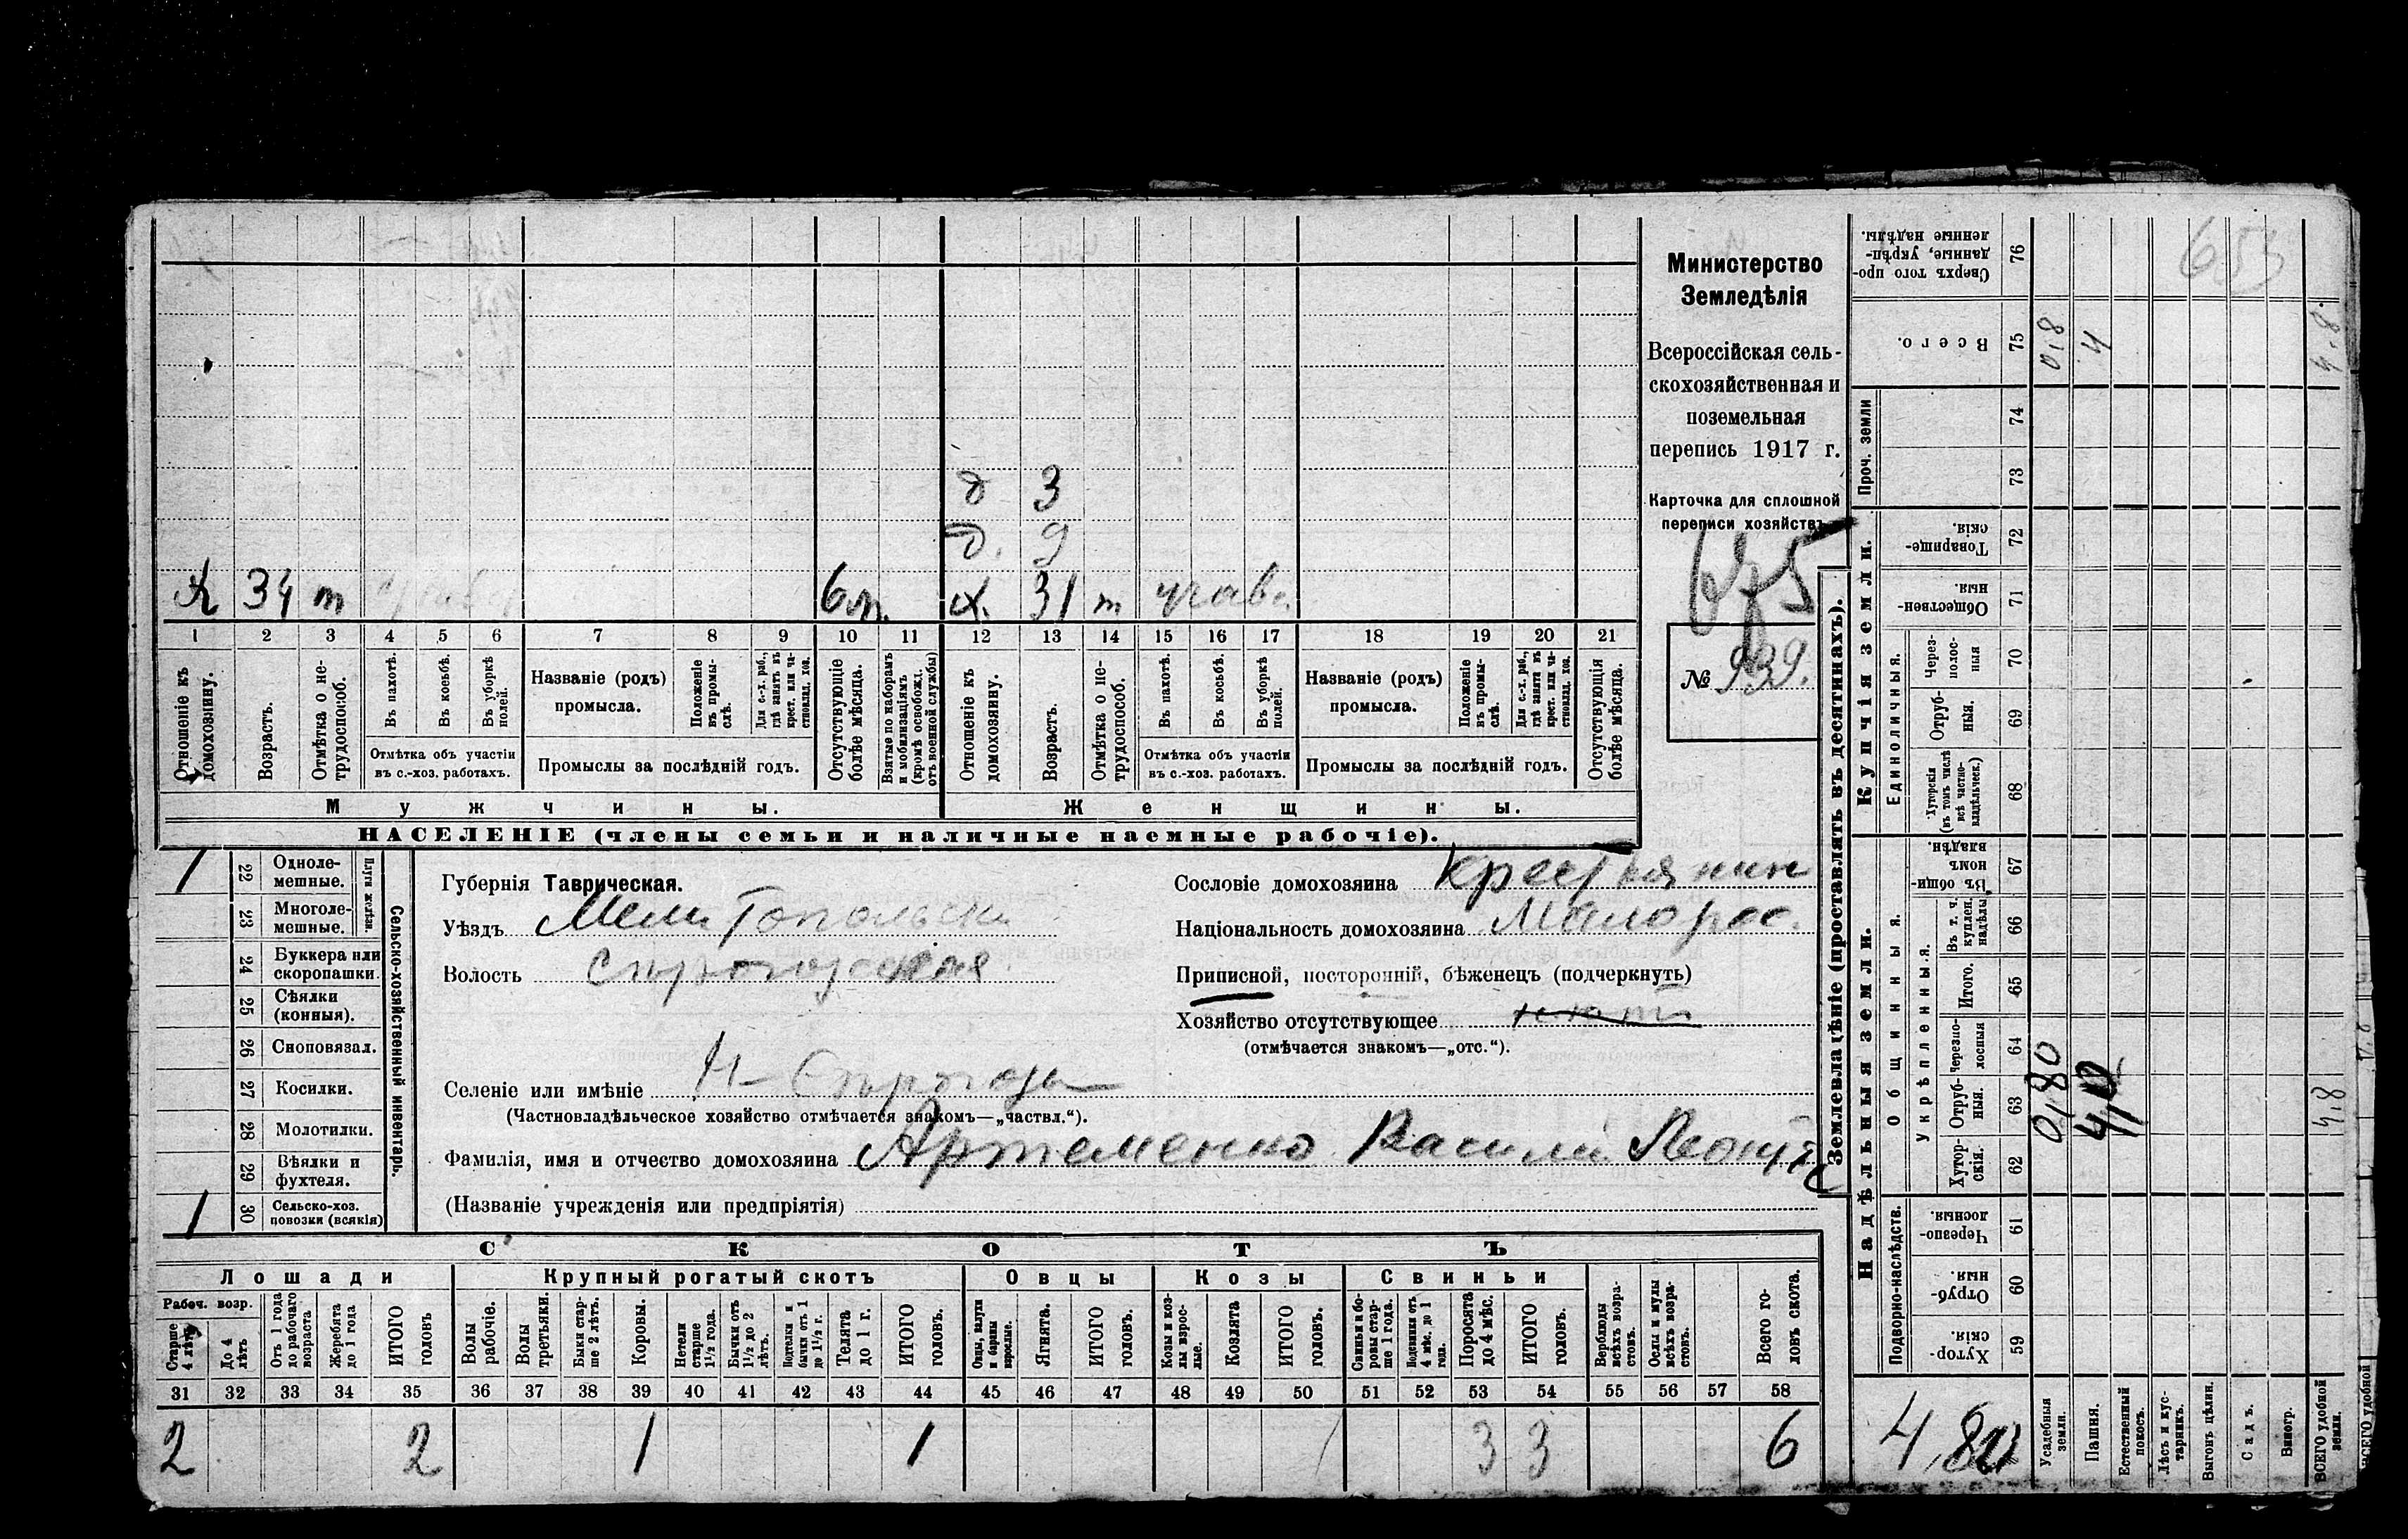 653
Министерство
Земледѣлія
Всероссійская сель-
скохозяйственная и
поземельная
перепись 1917 г.
Карточка для сплошной
переписи хозяйствъ
№ 939.
д 3
д. 9
х 34 т 6 м. х. 31 т
1 2 3 4 5 6 7 8 9 10 11 12 13 14 15 16 17 18 19 20 21
Отношеніе къ домохозяину.
Возрастъ.
Отмѣтка о не-трудоспособ.
Въ пахотѣ.
Въ косьбѣ.
Въ уборкѣ полей.
Отмѣтка объ участіи
въ с.-хоз. работахъ.
Названіе (родъ)
промысла.
Положеніе въ промы-слѣ.
Для с.-х. раб., гдѣ занятъ въ крест. или ча-стновлад. хоз.
Промыслы за послѣдній годъ.
Отсутствующіе болѣе мѣсяца.
Взятые по наборамъ и мобилизаціямъ (кромѣ освобожд. отъ военной службы)
Отношеніе къ домохозяину.
Возрастъ.
Отмѣтка о не-трудоспособ.
Въ пахотѣ.
Въ косьбѣ.
Въ уборкѣ полей.
Отмѣтка объ участіи
въ с.-хоз. работахъ.
Названіе (родъ)
промысла.
Положеніе въ промы-слѣ.
Для с.-х. раб., гдѣ заняти въ крест. или ча-стновлад. хоз.
Промыслы за послѣдній годъ.
Отсутствующія болѣе мѣсяца.
Мужчины. Женщины.
НАСЕЛЕНІЕ (члены семьи и наличные наемные рабочіе).
Сельско-хозяйственный инвентарь.
Плуги желѣзн.
1 22 Одноле-мешные.
23 Многоле-мешные.
24 Буккера или скоропашки.
25 Сѣялки (конныя).
26 Сноповязал.
27 Косилки.
28 Молотилки.
29 Вѣялки и фухтеля.
1 30 Сельско-хоз. повозки (всякія)
Губернія Таврическая.
Уѣздъ Мелитопольски
Волость Сирогозская
Селеніе или имѣніе Н-Сирогозы
(Частновладѣльческое хозяйство отмѣчается знакомъ—„частвл.“).
Фамилія, имя и отчество домохозяина Артеменко Василий Леонт
(Названіе учрежденія или предпріятія)
Сословіе домохозяина крестьянин
Національность домохозяина Малорос.
Приписной, посторонній, бѣженецъ (подчеркнуть)
Хозяйство отсутствующее
(отмѣчается знакомъ—„отс.“).
СКОТЪ
Лошади Крупный рогатый скотъ Овцы Козы Свиньи
Рабоч. возр.
Старше 4 лѣтъ
До 4 лѣтъ
Отъ 1 года до рабочаго возраста
Жеребята до 1 года
ИТОГО головъ
Волы рабочіе.
Волы третьяки.
Быки стар-ше 2 лѣтъ.
Коровы.
Нетели старше 1½ года.
Бычки отъ 1½ до 2 лѣтъ.
Подтелки и бычки отъ 1 до 1½ г.
Телята до 1 г.
ИТОГО головъ.
Овцы, валухи и бараны взрослые.
Ягнята.
ИТОГО головъ.
Козы и коз-лы взрос-лые.
Козлята
ИТОГО головъ.
Свиньи и бо-ровы стар-ше 1 года.
Подсвинки отъ 4 мѣс. до 1 года.
Поросята до 4 мѣс.
ИТОГО головъ.
Верблюды всѣхъ возра-стовъ.
Ослы и мулы всѣхъ возра-стовъ.
Всего го-ловъ скота.
31 32 33 34 35 36 37 38 39 40 41 42 43 44 45 46 47 48 49 50 51 52 53 54 55 56 57 58
2 2 1 1 3 3 6
Землевладѣніе (проставлять въ десятинахъ).
Купчія земли.
Надѣльныя земли.
Сверхъ того про-данные, укрѣп-ленные надѣлы. 76
Всего. 75 0,8 4 4,8.
Проч. земли 74
73
Товарище-скія. 72
Обществен-ныя 71
Единоличныя.
Через-полос-ныя 70
Отруб-ныя. 69
Хуторскія (въ томъ числѣ всѣ частно-владѣльческ.) 68
Общинныя.
Въ общи-номъ владѣн. 67
Укрѣпленныя.
Въ т. ч. куплен. надѣлы 66
Итого. 65
Черезпо-лосныя 64
Отруб-ныя. 63 0,80 4,8
Хутор-скія. 62
Подворно-наслѣдств.
Черезпо-лосныя. 61
Отруб-ныя. 60
Хутор-скія. 59
4,80
Усадебныя земли.
Пашня.
Естественный покосъ.
Лѣсъ и кус-тарникъ.
Выгонъ цѣлин.
Садъ.
Виногр.
ВСЕГО удобной земли.
ВСЕГО удобной